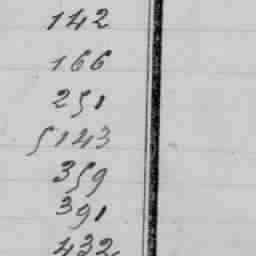 142
166
251
5143
359
391
432